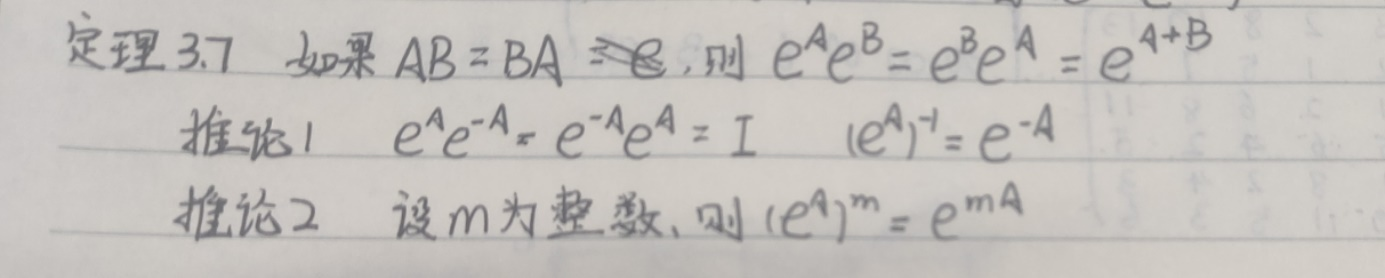 定理3.7 如果 AB=BA,则 e^A e^B = e^B e^A = e^{A+B}
推论1 e^A e^{-A} = e^{-A} e^A = I (e^A)^{-1} = e^{-A}
推论2 设m为整数,则 (e^A)^m = e^{mA}